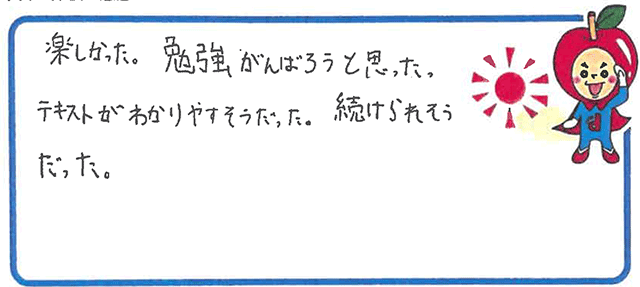 楽しかった。勉強がんばろうと思った。
テキストがわかりやすそうだった。続けられそう
だった。